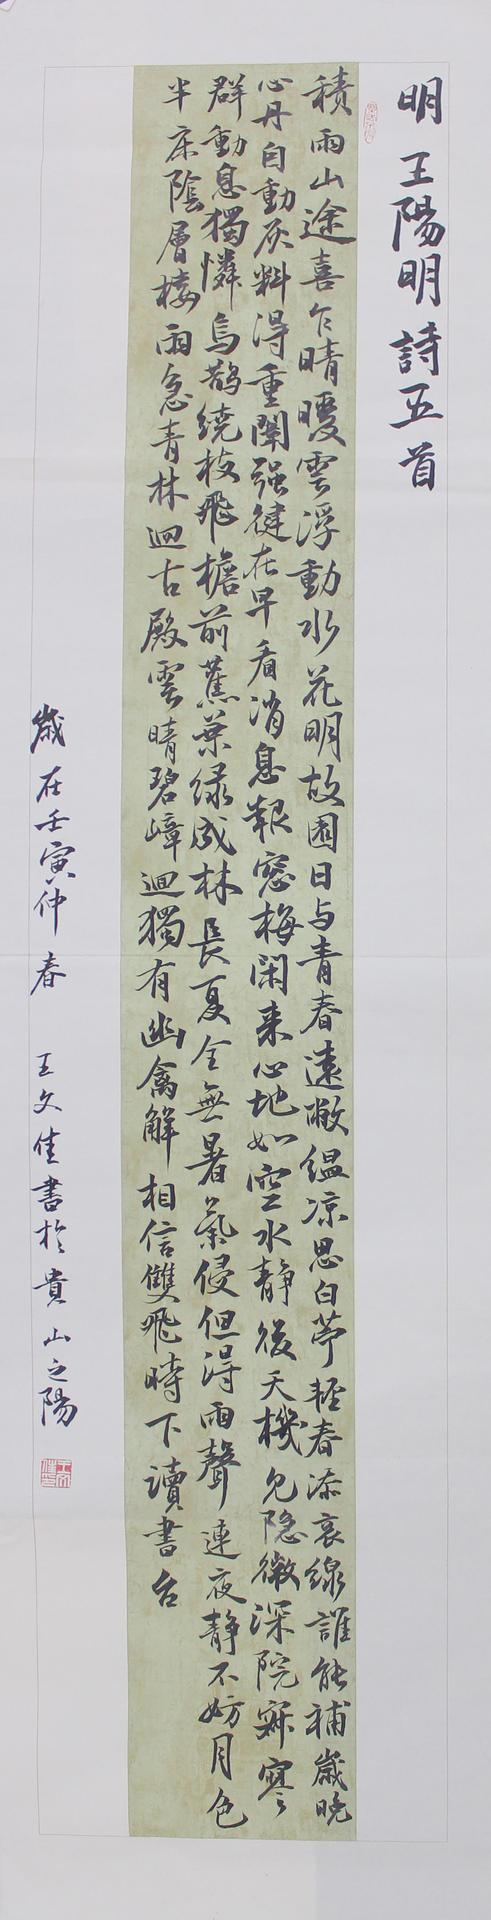 明王陽明詩五首
積雨山途喜乍晴暖雲浮動水花明故園日与青春遠敝緼凉思白苧輕春添衮線誰能補歲晚
心丹自動灰料得重闈强健在早看消息報窓梅閑来心地如空水静後天機見隐微深院寂寥
群動息獨憐烏鹊繞枝飛檐前蕉葉緑成林長夏全無暑氣侵但得雨聲連夜静不妨月色
半床陰層樓雨急青林迴古殿雲晴碧嶂迴獨有幽禽解相信雙飛時下讀書台
歲在壬寅仲春 王文佳書於貴山之陽